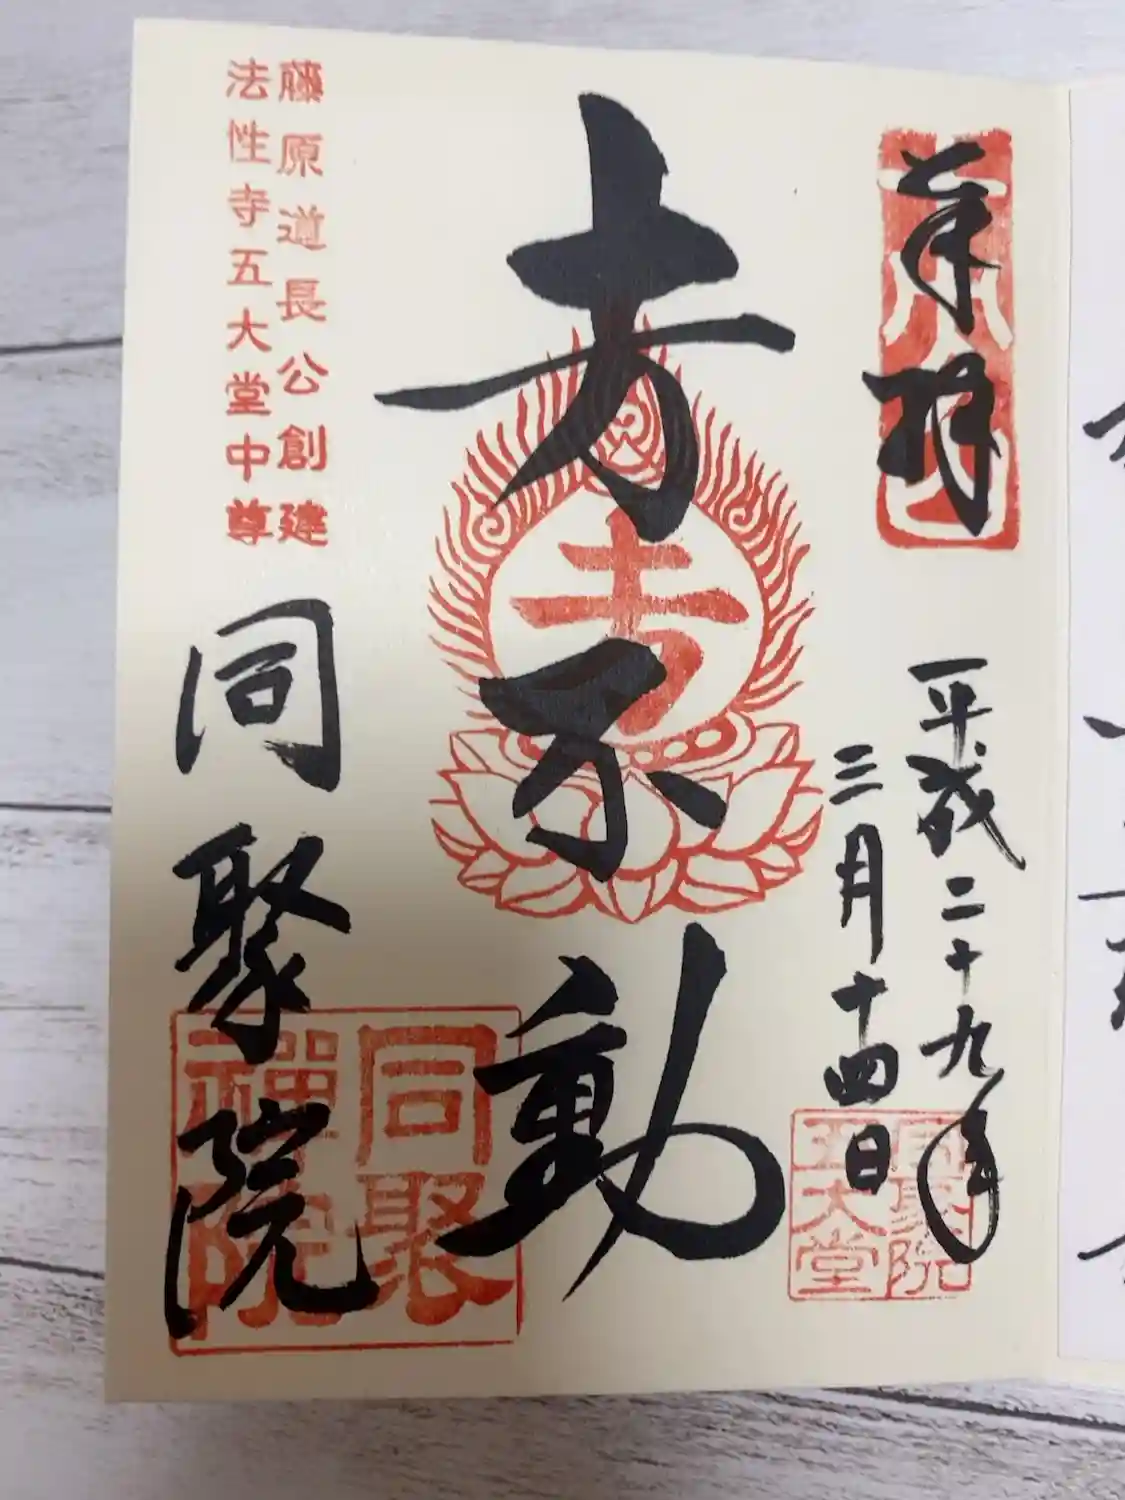 奉拝
平成二十九年
三月十四日
同聚院
五大堂
𡈽不動
藤原道長公創建
法性寺五大堂中尊
同聚院
同聚
禅院